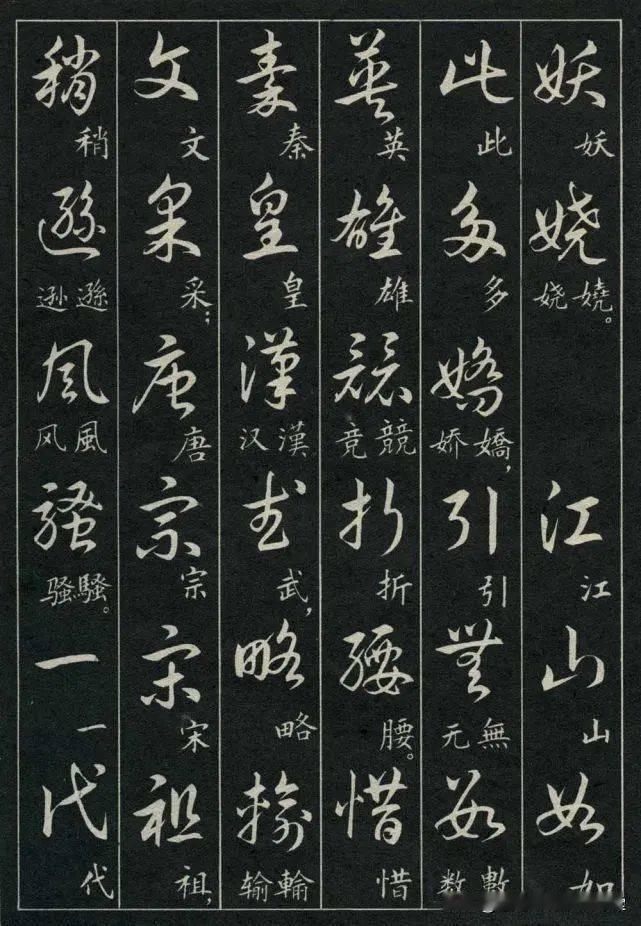 妖嬈江山如
妖嬈。娆江山如
此多嬌引無數
此多嬌，娇引無无數数
英雄競折腰惜
英雄競竞折腰。惜
秦皇漢武略輸
秦皇漢汉武，略輸输
文采唐宗宋祖
文采；唐宗宋祖，
稍遜風騷一代
稍遜逊風风騷。骚一代